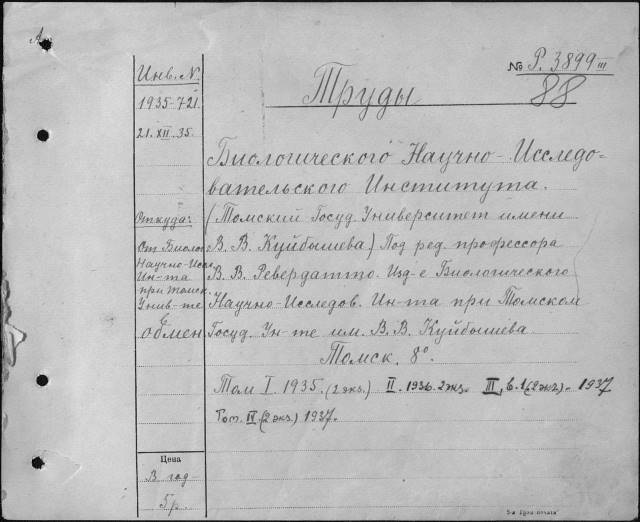 № P. 3899 III
88
Труды
Биологического Научно-Исследо-
вательского Института.
(Томский Госуд. Университет имени
В. В. Куйбышева) Под ред. профессора
В. В. Ревердатто. Изд-е Биологического
Научно-Исследов. Ин-та при Томском
Госуд. Ун-те им. В. В. Куйбышева.
Томск. 8°.
Том I. 1935. (2 экз.) II. 1936. 2 экз. III, в. 1 (2 экз.). 1937
Том. IV (2 экз.) 1937.
Инв. N
1935-721.
21.XII.35.
Откуда:
От Биолог.
Научно-Иссл.
Ин-та
при Томск.
Унив-те
обмен
Цена
В год
5 р.